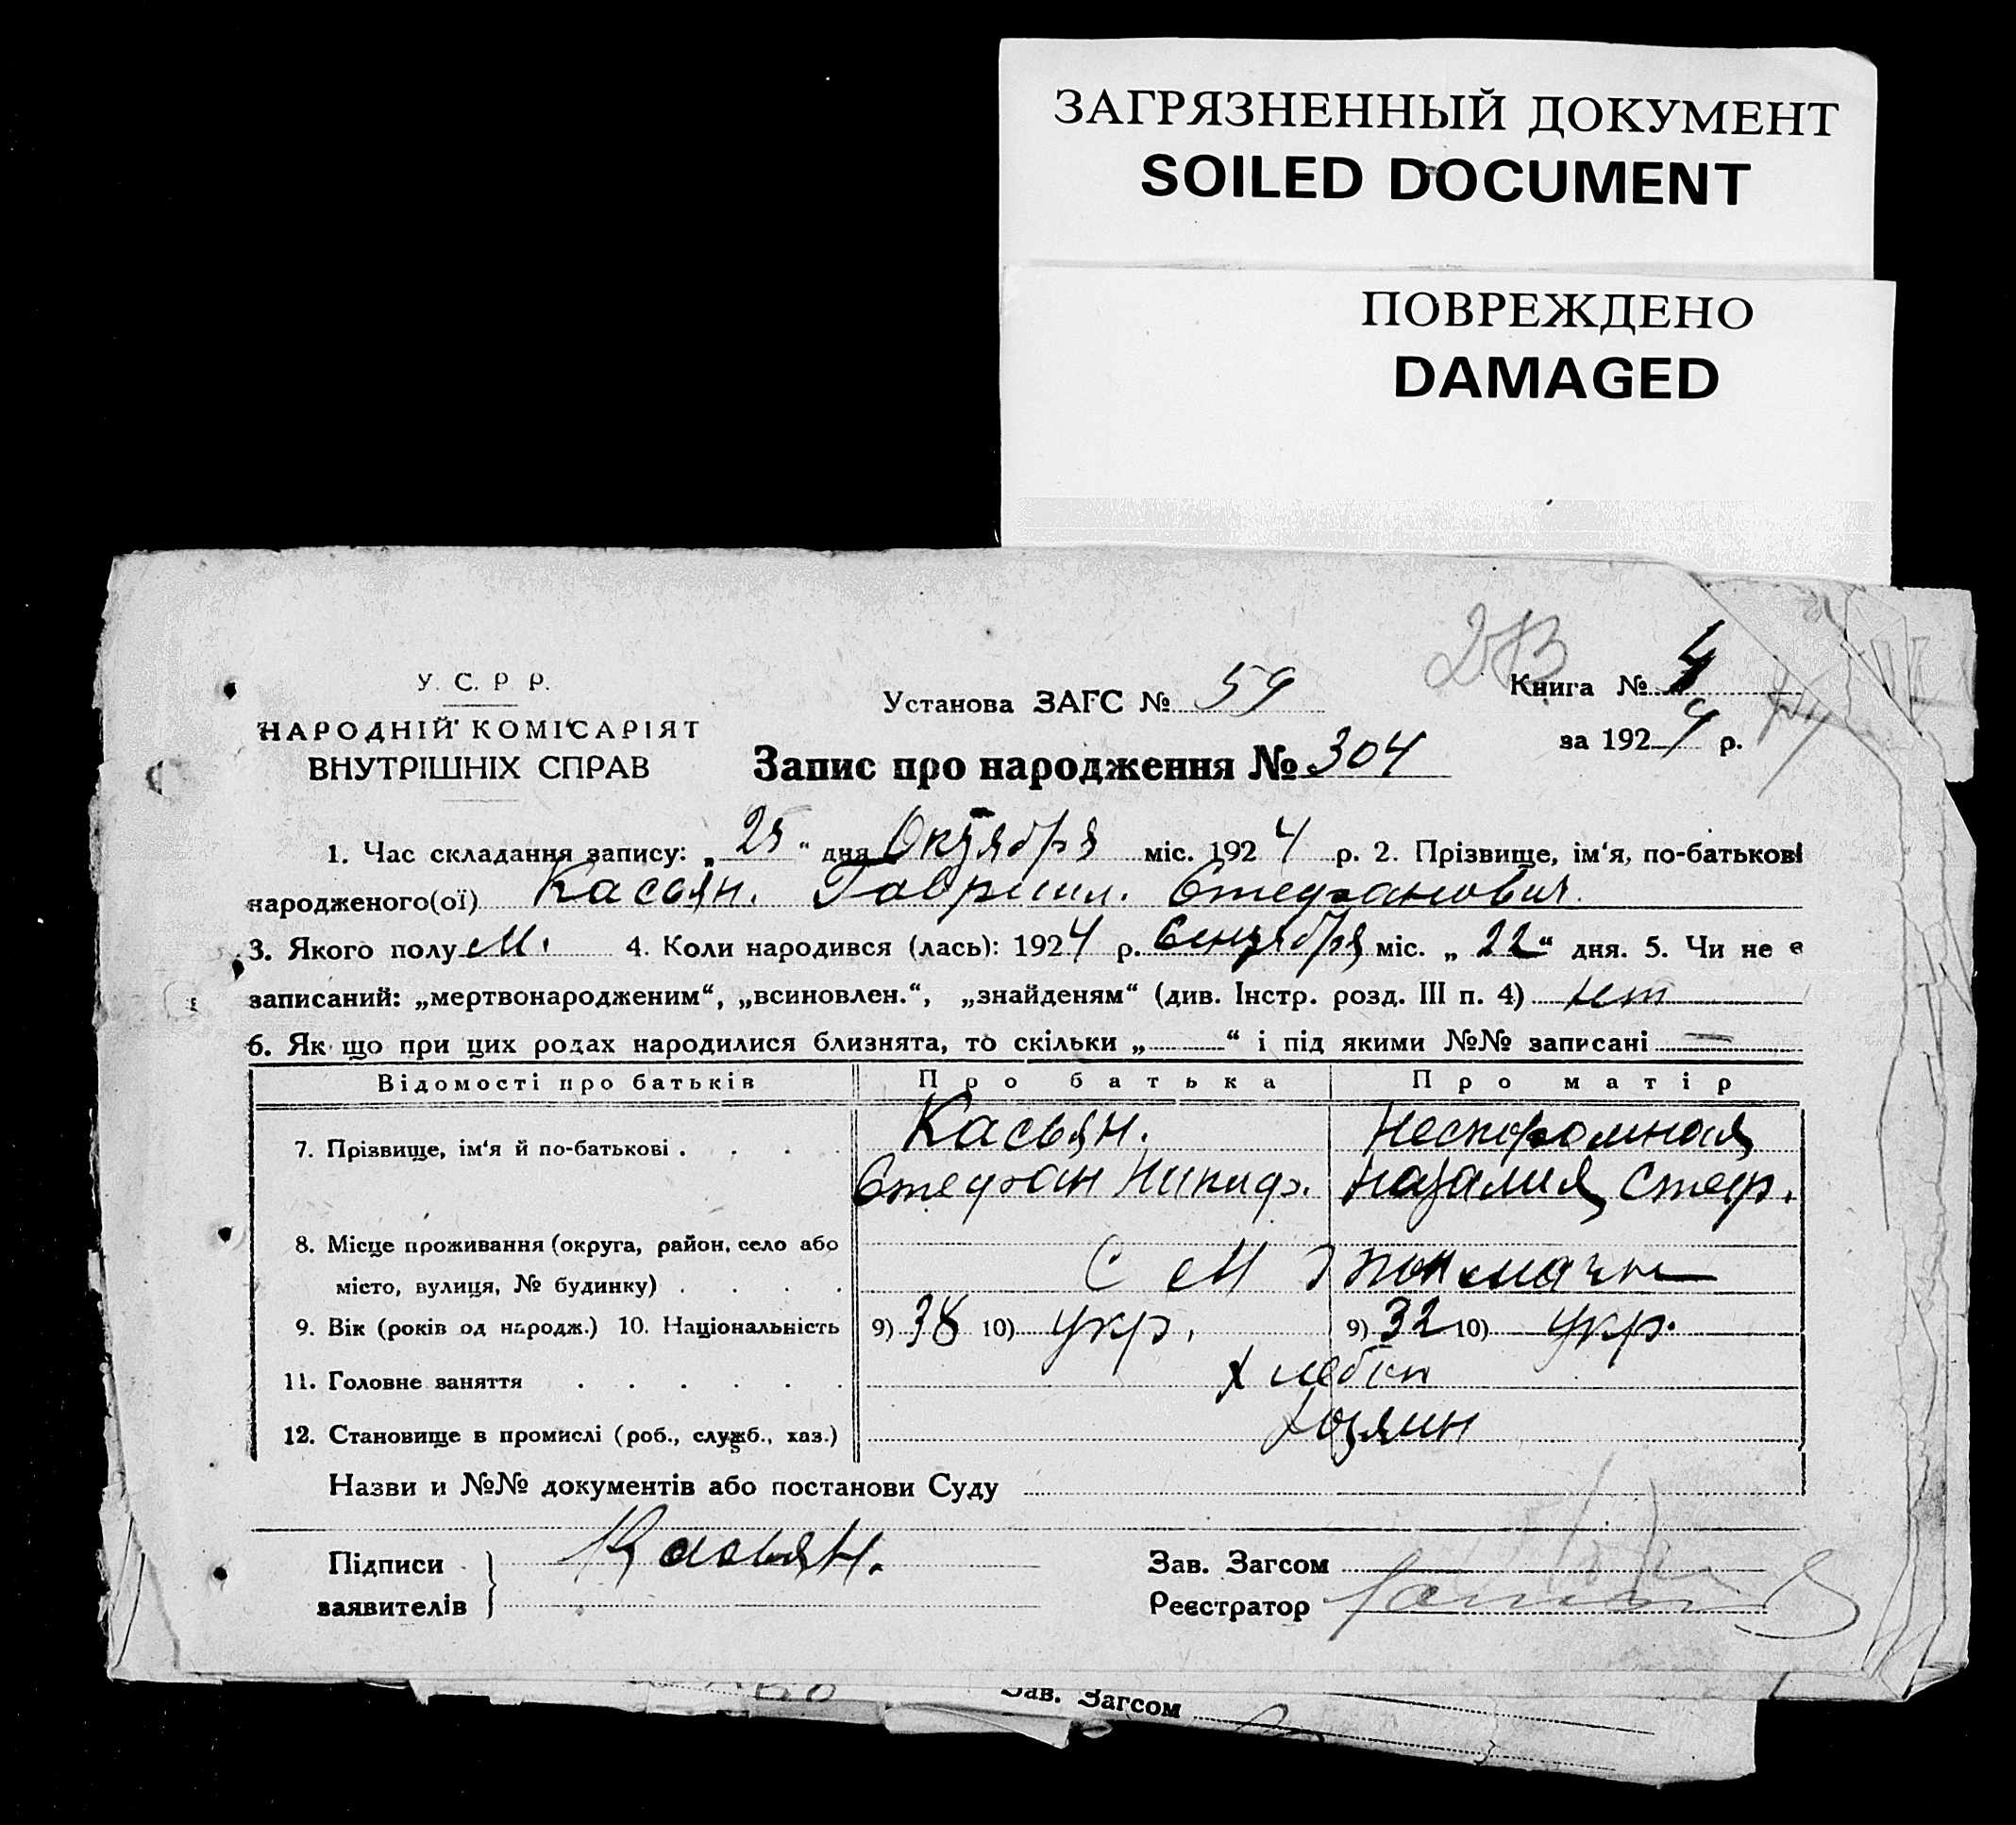 ЗАГРЯЗНЕННЫЙ ДОКУМЕНТ
SOILED DOCUMENT
ПОВРЕЖДЕНО
DAMAGED
У. С. Р Р.
НАРОДНІЙ КОМІСАРІЯТ
ВНУТРІШНІХ СПРАВ
Установа ЗАГС № 59
Книга № 4
за 1924 р.
Запис про народження № 304
1. Час складання запису: „25“ дня Октября міс. 1924 р. 2. Прізвище, ім'я, по-батькові
народженого(ої) Касьян. Гавриил. Стефанович.
3. Якого полу М. 4. Коли народився (лась): 1924 р. Сентября міс. „22“ дня. 5. Чи не е
записаний: „мертвонародженим“, „всиновлен.“, „знайденям“ (див. Інстр. розд. III п. 4) нет
6. Як що при цих родах народилися близнята, то скільки „ “ і під якими №№ записані —
Відомості про батьків Про батька Про матір
7. Прізвище, ім'я й по-батькові . . . . Касьян. Нескоромная
Стефан Никиф. Наталия Стеф.
8. Місце проживання (округа, район, село або
місто, вулиця, № будинку) . . . . С М
9. Вік (років од народж.) 10. Національність 9) 38 10) укр. 9) 32 10) укр.
11. Головне заняття . . . . . . хлебоп
12. Становище в промислі (роб., служб., хаз.) хозяин
Назви и №№ документів або постанови Суду
Підписи Касьян. Зав. Загсом
заявителів Реєстратор
Зав. Загсом